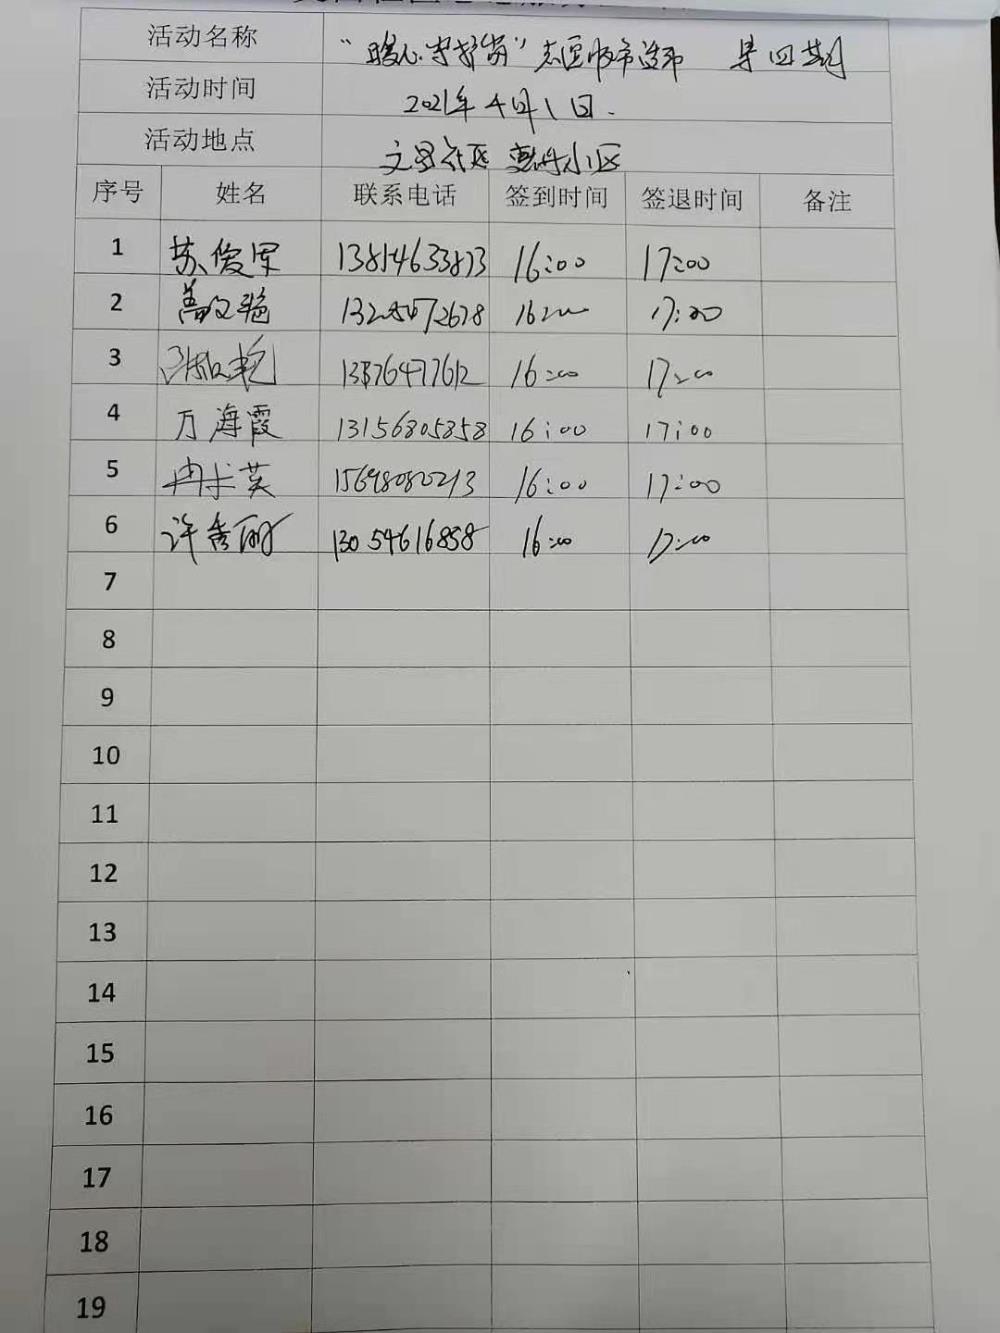 活动名称 "暖心守护岗" 第四期
活动时间 2021年4月1日.
活动地点 小区
序号 姓名 联系电话 签到时间 签退时间 备注
1 苏俊军 16:00 17:00
2 16:00 17:00
3 16:00 17:00
4 万海霞 13156805858 16:00 17:00
5 冉 英 15698080213 16:00 17:00
6 许秀丽 13054616858 16:00 17:00
7
8
9
10
11
12
13
14
15
16
17
18
19